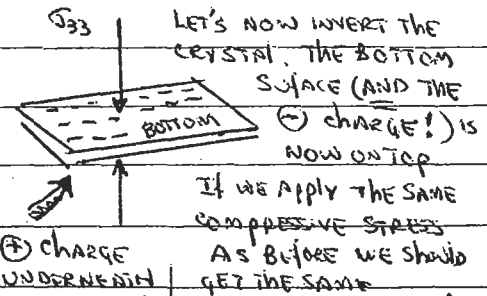 σ33
LET'S NOW INVERT THE
CRYSTAL. THE BOTTOM
SURFACE (AND THE
⊖ CHARGE!) IS
NOW ON TOP
BOTTOM
IF WE APPLY THE SAME
COMPRESSIVE STRESS
AS BEFORE WE SHOULD
GET THE SAME
⊕ CHARGE
UNDERNEATH